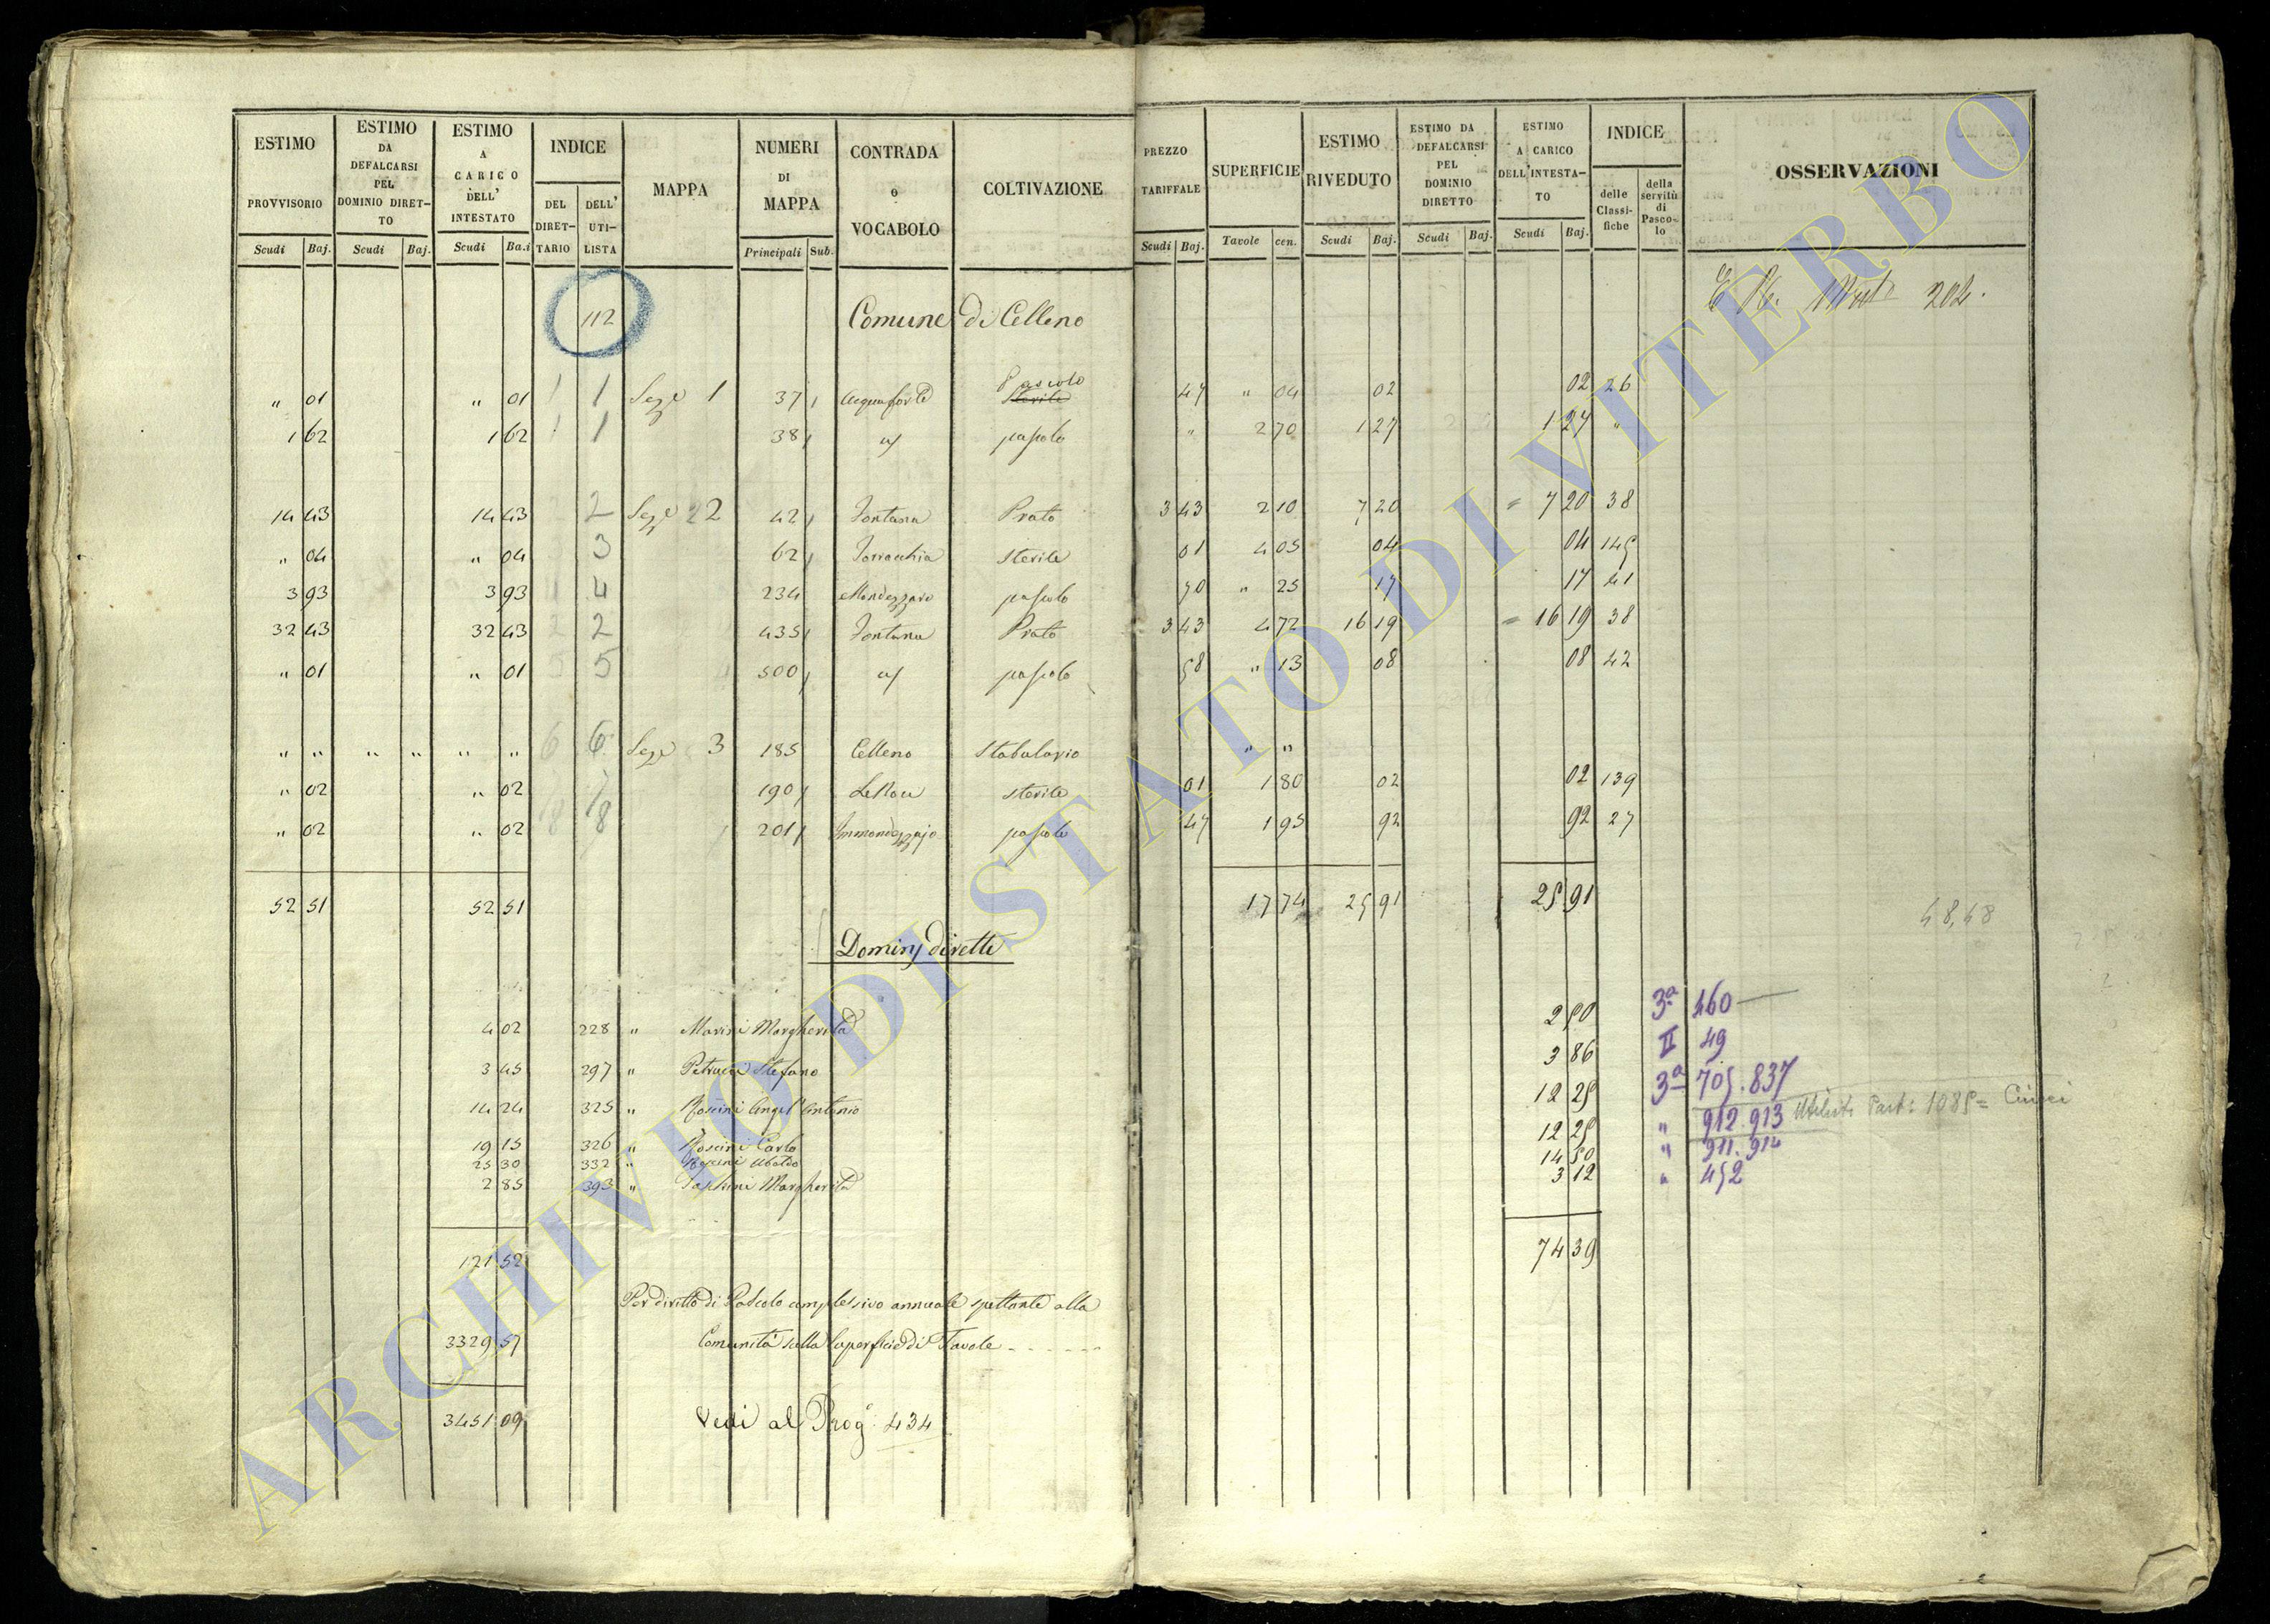 ESTIMO PROVVISORIO Scudi Baj.
ESTIMO DA DEFALCARSI PEL DOMINIO DIRETTO Scudi Baj.
ESTIMO A CARICO DELL' INTESTATO Scudi Ba.i
INDICE DEL DIRETTARIO DELL' UTILISTA
MAPPA
NUMERI DI MAPPA Principali Sub.
CONTRADA o VOCABOLO
COLTIVAZIONE
PREZZO TARIFFALE Scudi Baj.
SUPERFICIE Tavole cen.
ESTIMO RIVEDUTO Scudi Baj.
ESTIMO DA DEFALCARSI PEL DOMINIO DIRETTO Scudi Baj.
ESTIMO A CARICO DELL'INTESTATO Scudi Baj.
INDICE delle Classifiche della servitù di Pascolo
OSSERVAZIONI
112 Comune di Celleno 202.
Pascolo
" 01 " 01 1 1 Sez.e 1 37 Acquaforte sterile 47 " 04 02 02 26
1 62 1 62 1 1 38 pascolo " 2 70 1 27 1 27 "
14 43 14 43 2 Sez.e 2 2 42 Fontana Prato 3 43 2 10 7 20 = 7 20 38
" 04 " 04 3 62 Torracchia sterile 01 4 05 04 04 145
3 93 3 93 4 234 Mondezzaro pascolo 70 " 25 17 17 41
32 43 32 43 2 2 435 Fontana Prato 3 43 4 72 16 19 = 16 19 38
" 01 " 01 5 5 500 pascolo 58 " 13 08 08 42
" " " " " " 6 6 Sez.e 3 185 Celleno Stabulario " "
" 02 " 02 190 Le Roce sterile 01 1 80 02 02 139
" 02 " 02 8 8 201 Immondezzajo pascolo 47 1 95 92 92 27
52 51 52 51 17 74 25 91 25 91
48,48
Dominj diretti
4 02 228 " Marini Margherita 2 50 3ª 460
3 45 297 " Petrucci Stefano 3 86 II 49
14 24 325 " Roscini Angel'Antonio 12 25 3ª 705.837
19 15 326 " Roscini Carlo 12 25 " 912.913 Utilista Part: 1085=
25 30 332 " Roscini Ubaldo 14 50 " 911.914
2 85 393 " Taschini Margherita 3 12 " 452
121 52 74 39
Per diritto di Pascolo complessivo annuale spettante alla
3329 57 Comunità sulla superficie di Tavole
3451 09 Vedi al Prog.o 434
ARCHIVIO DI STATO DI VITERBO